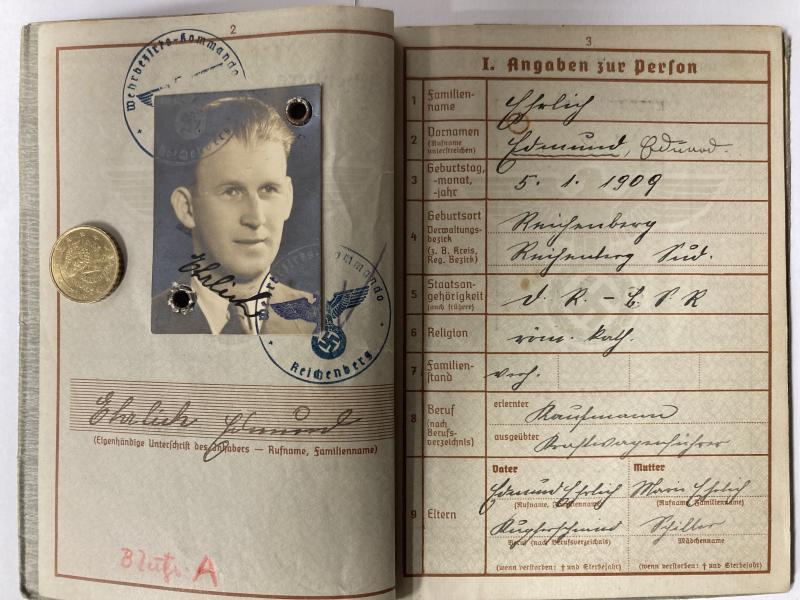 2
Wehrbezirks-Kommando
Reichenberg
Ehrlich
Wehrbezirks-Kommando
Reichenberg
Ehrlich Edmund
(Eigenhändige Unterschrift des Inhabers — Rufname, Familienname)
A
3
I. Angaben zur Person
1 Familien-
name
Ehrlich
2 Vornamen
(Rufname
unterstreichen)
Edmund, Eduard.
3 Geburtstag,
-monat,
-jahr
5. 1. 1909
4 Geburtsort
Verwaltungs-
bezirk
(z. B. Kreis,
Reg. Bezirk)
Reichenberg
Reichenberg Sud.
5 Staatsan-
gehörigkeit
(auch frühere)
d. R. - Č S R
6 Religion
röm. kath.
7 Familien-
stand
verh.
8 Beruf
(nach
Berufs-
verzeichnis)
erlernter Kaufmann
ausgeübter Kraftwagenführer
9 Eltern
Vater
Edmund Ehrlich
(Rufname, Familienname)
Beruf (nach Berufsverzeichnis)
(wenn verstorben: † und Sterbejahr)
Mutter
Marie Ehrlich
(Rufname, Familienname)
Schiller
Mädchenname
(wenn verstorben: † und Sterbejahr)